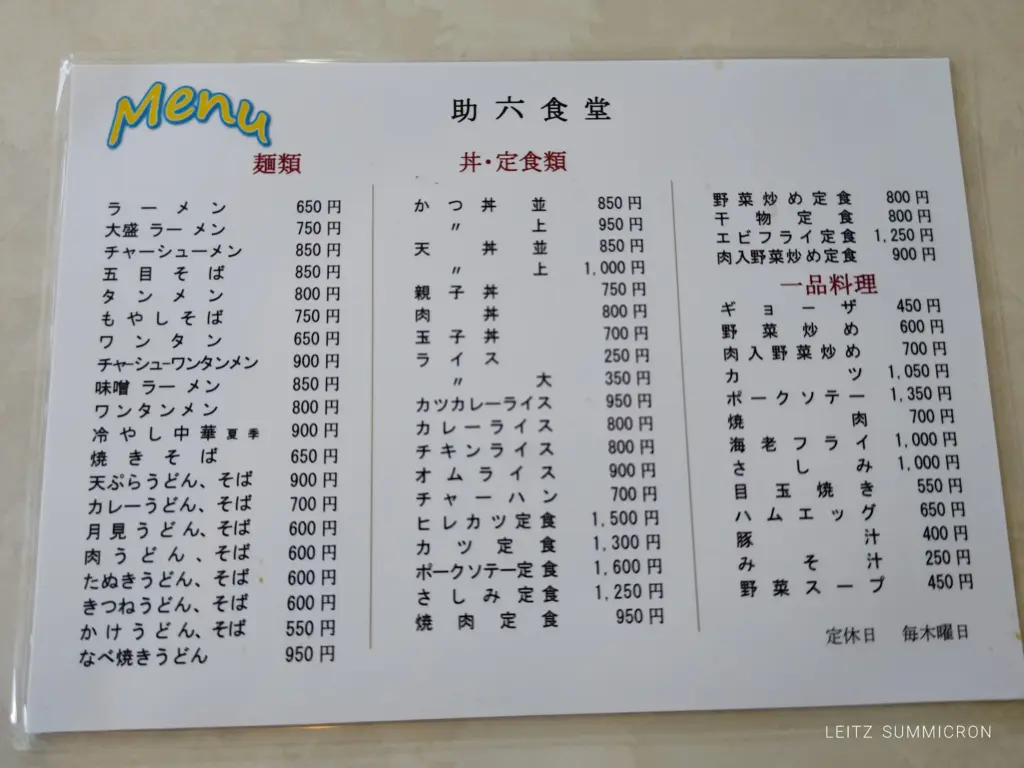 Menu
助六食堂
麺類
ラーメン 650円
大盛ラーメン 750円
チャーシューメン 850円
五目そば 850円
タンメン 800円
もやしそば 750円
ワンタン 650円
チャーシューワンタンメン 900円
味噌ラーメン 850円
ワンタンメン 800円
冷やし中華 夏季 900円
焼きそば 650円
天ぷらうどん、そば 900円
カレーうどん、そば 700円
月見うどん、そば 600円
肉うどん、そば 600円
たぬきうどん、そば 600円
きつねうどん、そば 600円
かけうどん、そば 550円
なべ焼きうどん 950円
丼・定食類
かつ丼 並 850円
〃 上 950円
天丼 並 850円
〃 上 1,000円
親子丼 750円
肉丼 800円
玉子丼 700円
ライス 250円
〃 大 350円
カツカレーライス 950円
カレーライス 800円
チキンライス 800円
オムライス 900円
チャーハン 700円
ヒレカツ定食 1,500円
カツ定食 1,300円
ポークソテー定食 1,600円
さしみ定食 1,250円
焼肉定食 950円
野菜炒め定食 800円
干物定食 800円
エビフライ定食 1,250円
肉入野菜炒め定食 900円
一品料理
ギョーザ 450円
野菜炒め 600円
肉入野菜炒め 700円
カツ 1,050円
ポークソテー 1,350円
焼肉 700円
海老フライ 1,000円
さしみ 1,000円
目玉焼き 550円
ハムエッグ 650円
豚汁 400円
みそ汁 250円
野菜スープ 450円
定休日 毎木曜日
LEITZ SUMMICRON